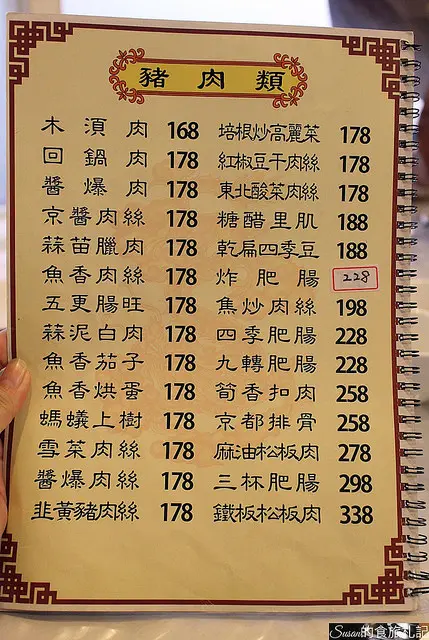 豬肉類
木須肉 168 培根炒高麗菜 178
回鍋肉 178 紅椒豆干肉絲 178
醬爆肉 178 東北酸菜肉絲 178
京醬肉絲 178 糖醋里肌 188
蒜苗臘肉 178 乾扁四季豆 188
魚香肉絲 178 炸肥腸 228
五更腸旺 178 焦炒肉絲 198
蒜泥白肉 178 四季肥腸 228
魚香茄子 178 九轉肥腸 228
魚香烘蛋 178 筍香扣肉 258
螞蟻上樹 178 京都排骨 258
雪菜肉絲 178 麻油松板肉 278
醬爆肉絲 178 三杯肥腸 298
韭黃豬肉絲 178 鐵板松板肉 338
Susan的食旅札記